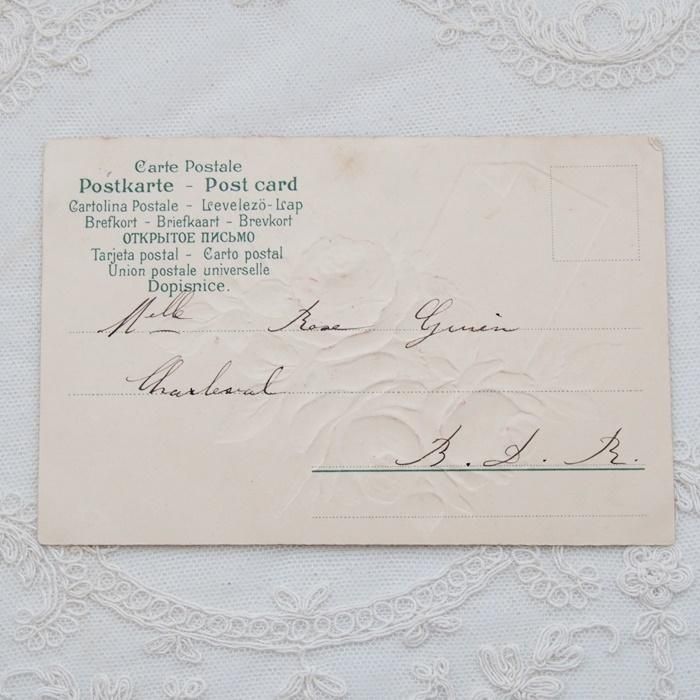 Carte Postale
Postkarte - Post card
Cartolina Postale - Levelezö-Lap
Brefkort - Briefkaart - Brevkort
ОТКРЫТОЕ ПИСЬМО
Tarjeta postal - Carto postal
Union postale universelle
Dopisnice.
Melle Rose Guién
Charleval
B. D. R.